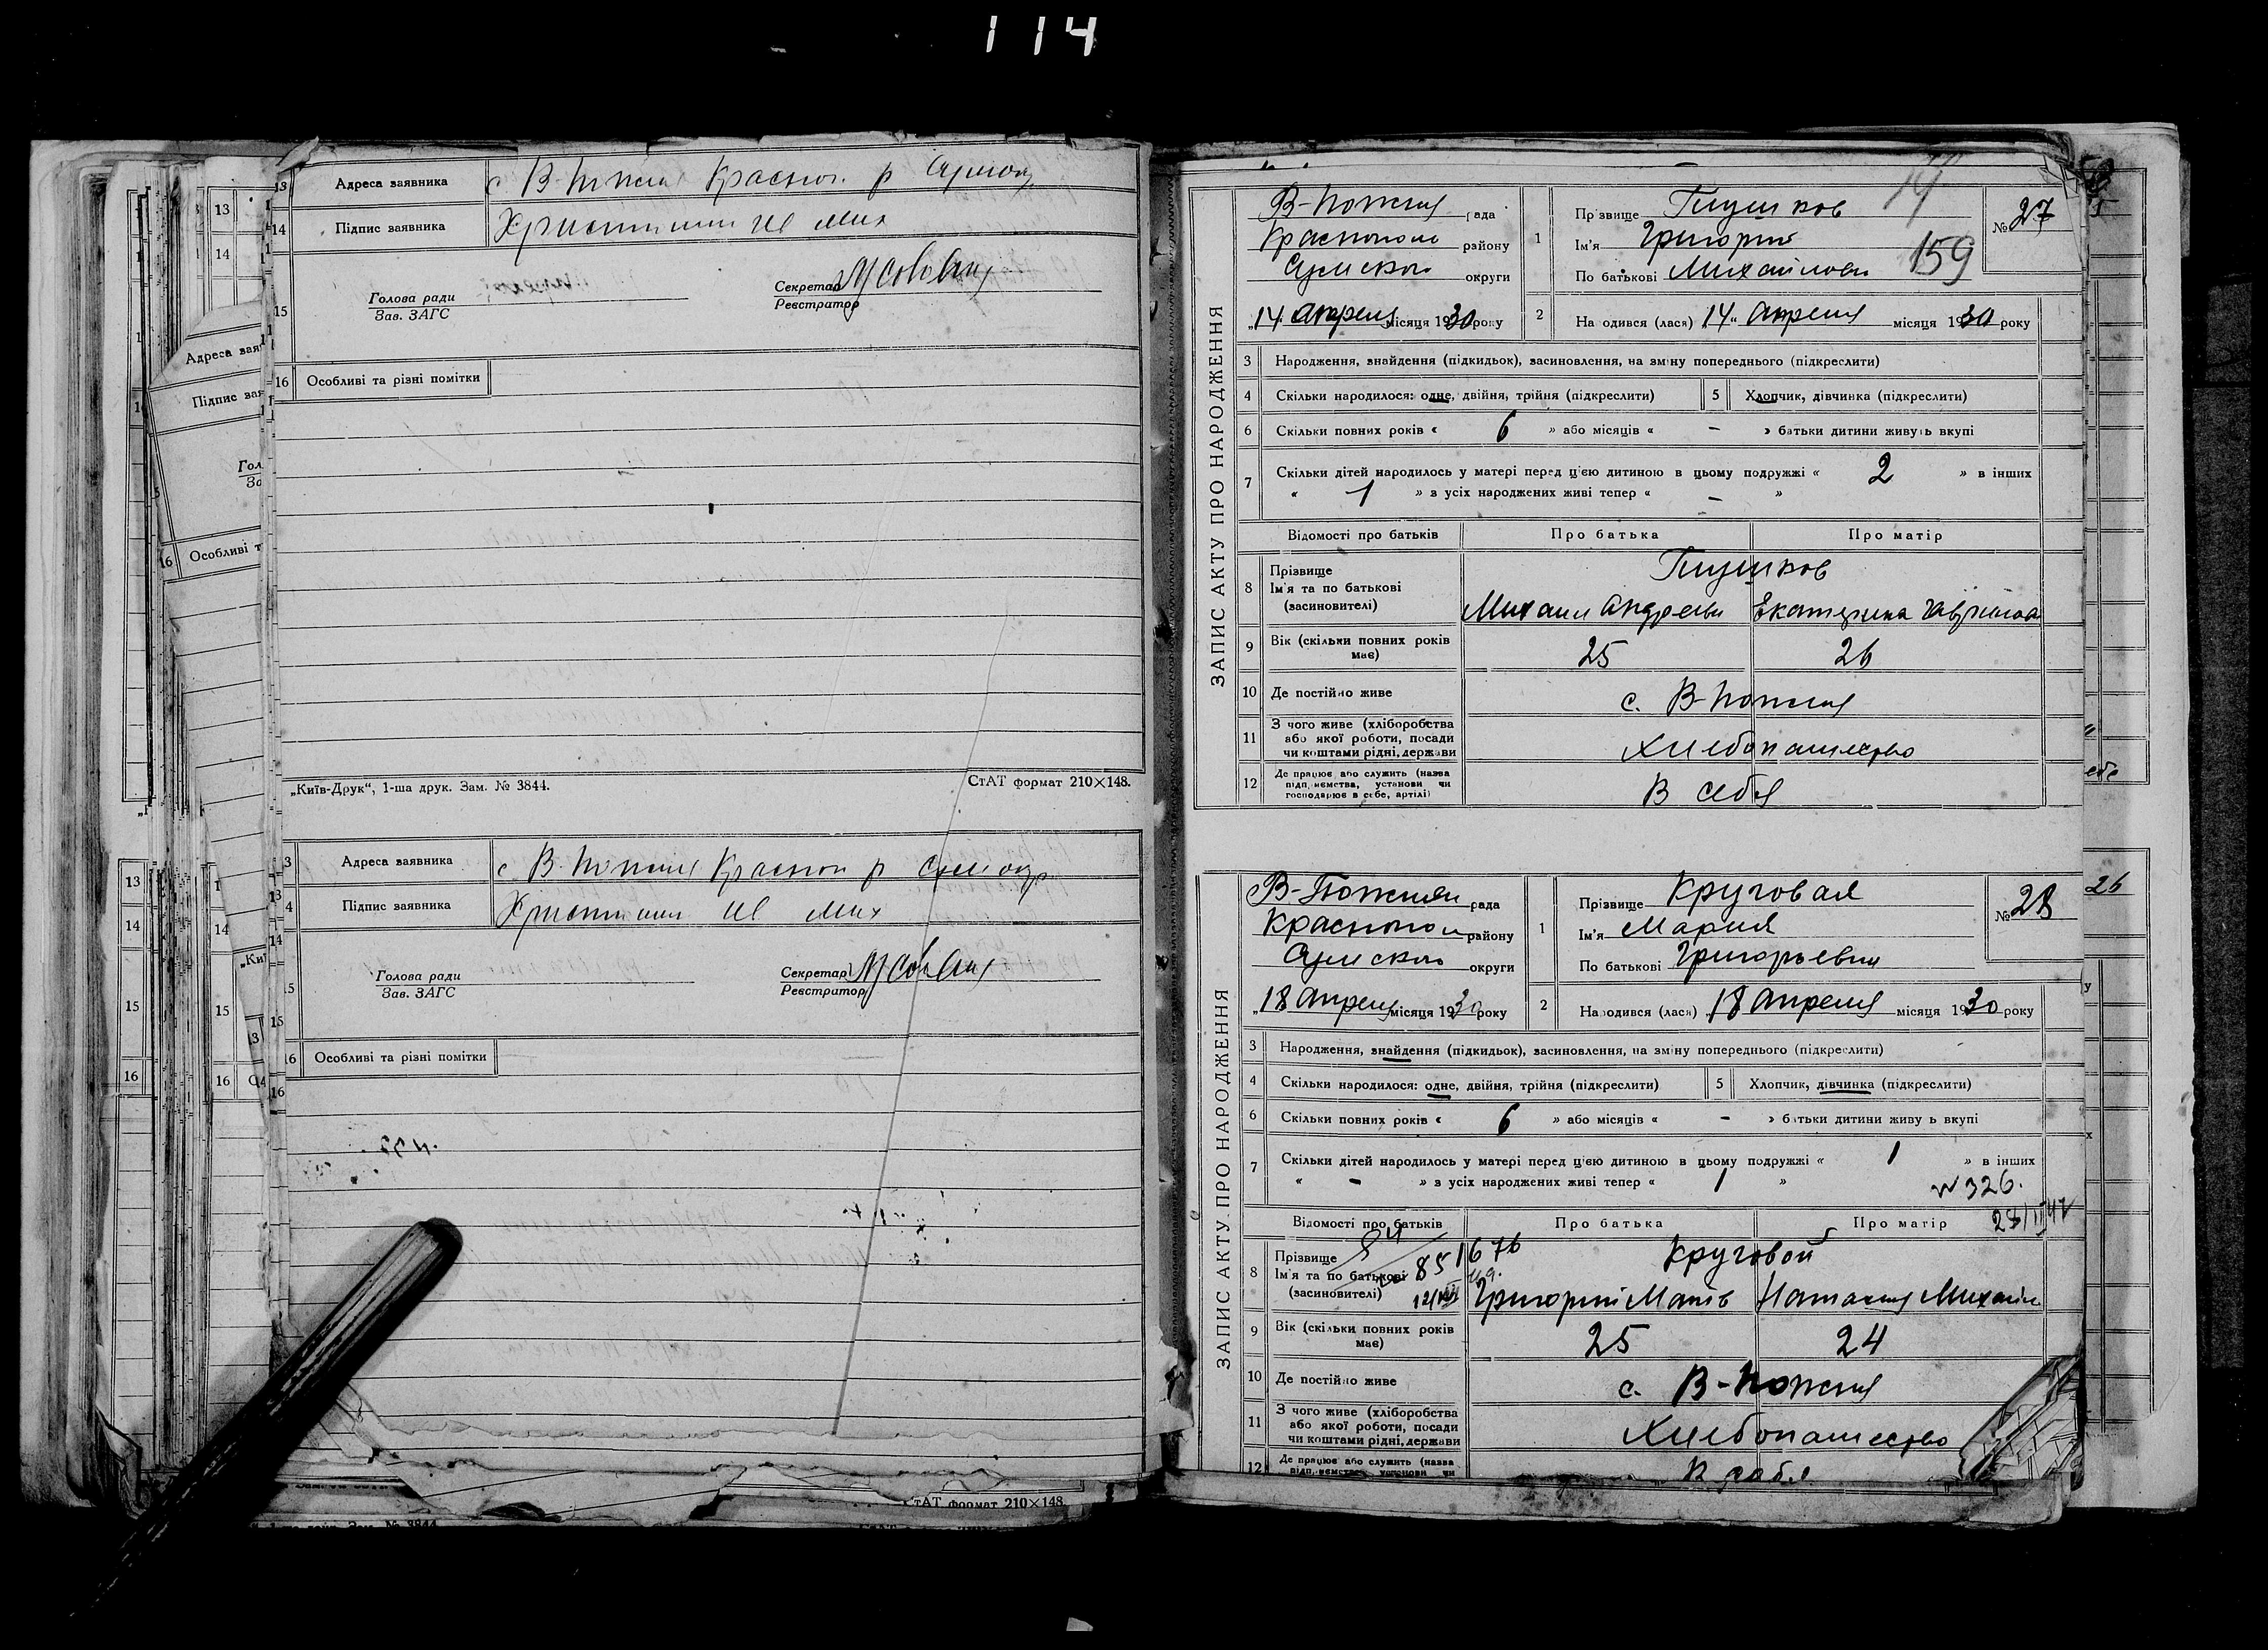 114
13 Адреса заявника с В-Пожня Красноп. р Сумок
14 Підпис заявника
Голова ради
Зав. ЗАГС
Секретар
Реєстратор
15
16 Особливі та різні помітки
„Київ-Друк“, 1-ша друк. Зам. № 3844.
СтАТ формат 210×148.
3 Адреса заявника с В-Пожня Красноп р Сум окр
4 Підпис заявника
Голова ради
Зав. ЗАГС
Секретар
Реєстратор
15
16 Особливі та різні помітки
СтАТ формат 210×148.
ЗАПИС АКТУ ПРО НАРОДЖЕННЯ
В-Пожня рада
Краснопол району
Сумском округи
„14 Апреля місяця 1930 року
1 Прізвище Глушков
Ім'я Григорий
По батькові Михайлови
159
№ 27
2 Народився (лася) 14 „ Апреля місяця 1930 року
3 Народження, знайдення (підкидьок), засиновлення, на зміну попереднього (підкреслити)
4 Скільки народилося: одне, двійня, трійня (підкреслити) 5 Хлопчик, дівчинка (підкреслити)
6 Скільки повних років « 6 » або місяців « - » батьки дитини живуть вкупі
7 Скільки дітей народилось у матері перед цією дитиною в цьому подружжі « 2 » в інших
« 1 » з усіх народжених живі тепер « - »
Відомості про батьків Про батька Про матір
8 Прізвище
Ім'я та по батькові
(засиновителі)
Глушков
Михаил Андреевич Екатерина Гаврилов
9 Вік (скільки повних років має) 25 26
10 Де постійно живе с. В-Пожня
11 З чого живе (хліборобства
або якої роботи, посади
чи коштами рідні, держави
Хлебопашество
12 Де працює або служить (назва
підприємства, установи чи
господарює в себе, артілі)
В себя
ЗАПИС АКТУ ПРО НАРОДЖЕННЯ
В-Пожнян рада
Краснопол району
Сумском округи
„18 Апреля місяця 1930 року
1 Прізвище Круговая
Ім'я Мария
По батькові Григорьевна
№ 28
2 Народився (лася) „18 Апреля місяця 1930 року
3 Народження, знайдення (підкидьок), засиновлення, на зміну попереднього (підкреслити)
4 Скільки народилося: одне, двійня, трійня (підкреслити) 5 Хлопчик, дівчинка (підкреслити)
6 Скільки повних років « 6 » або місяців « - » батьки дитини живуть вкупі
7 Скільки дітей народилось у матері перед цією дитиною в цьому подружжі « 1 » в інших
« - » з усіх народжених живі тепер « 1 »
N 326.
Відомості про батьків Про батька Про матір
8 Прізвище
Ім'я та по батькові
(засиновителі)
Круговой
Григорий Матв Наталия Михайл
9 Вік (скільки повних років має) 25 24
10 Де постійно живе с. В-Пожня
11 З чого живе (хліборобства
або якої роботи, посади
чи коштами рідні, держави
Хлебопашество
12 Де працює або служить (назва
підприємства, установи чи
В себя